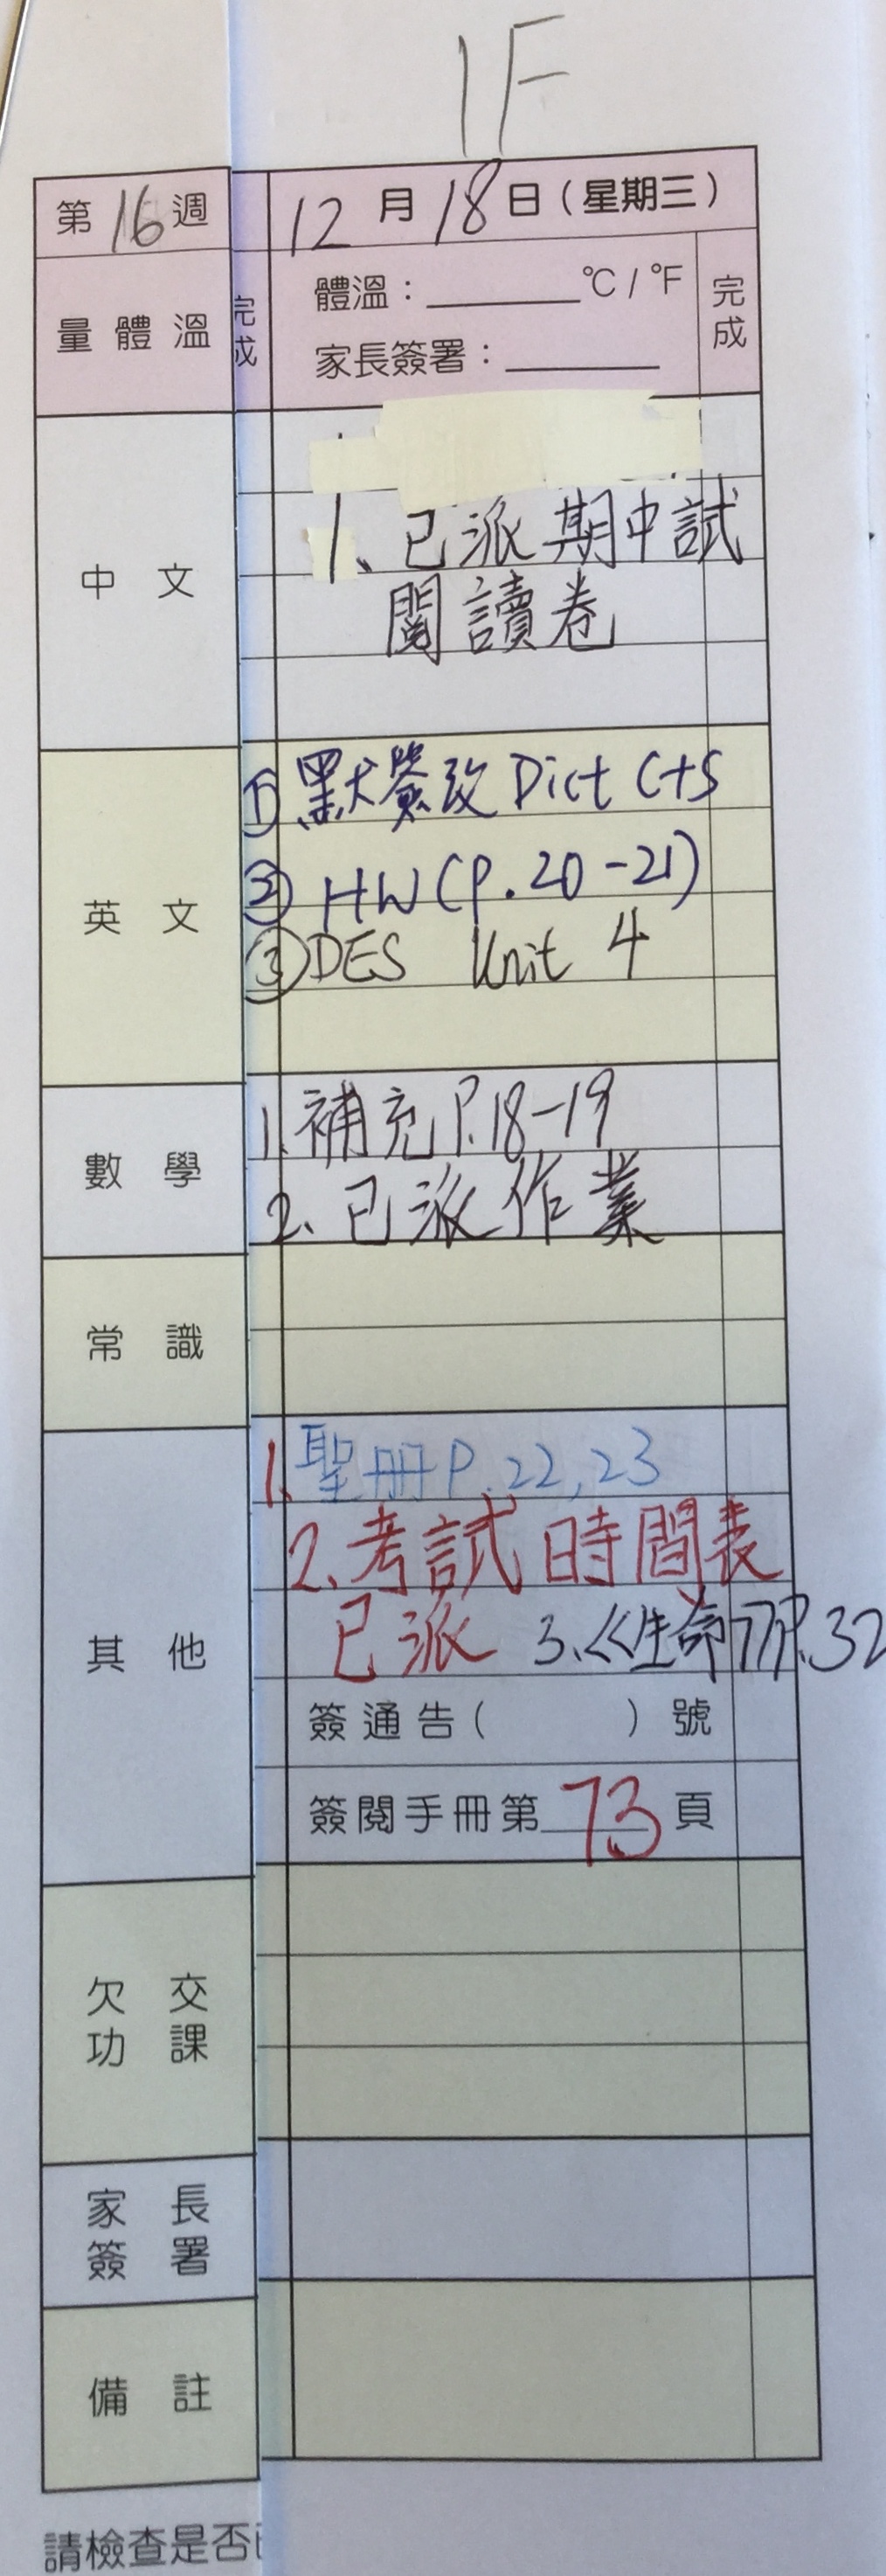 1F
第16週 12月18日(星期三)
量體溫 完成 體溫：______°C/°F 完成
家長簽署：______
中文
1、已派期中試
閱讀卷
英文
① 默簽改 Dict C+S
② HW (P.20-21)
③ DES Unit 4
數學
1. 補充P.18-19
2、已派作業
常識
其他
1、聖冊P.22,23
2、考試時間表
已派 3、《生命》P.32
簽通告( )號
簽閱手冊第73頁
欠交
功課
家長
簽署
備註
請檢查是否